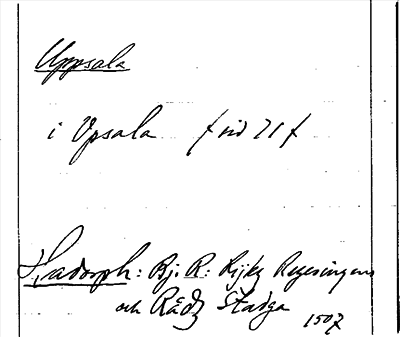 Uppsala
i Vpsala f vid 71 f
Hadorph: Bj. R: Rijkz Regeringens
och Rådz Stadga
1507